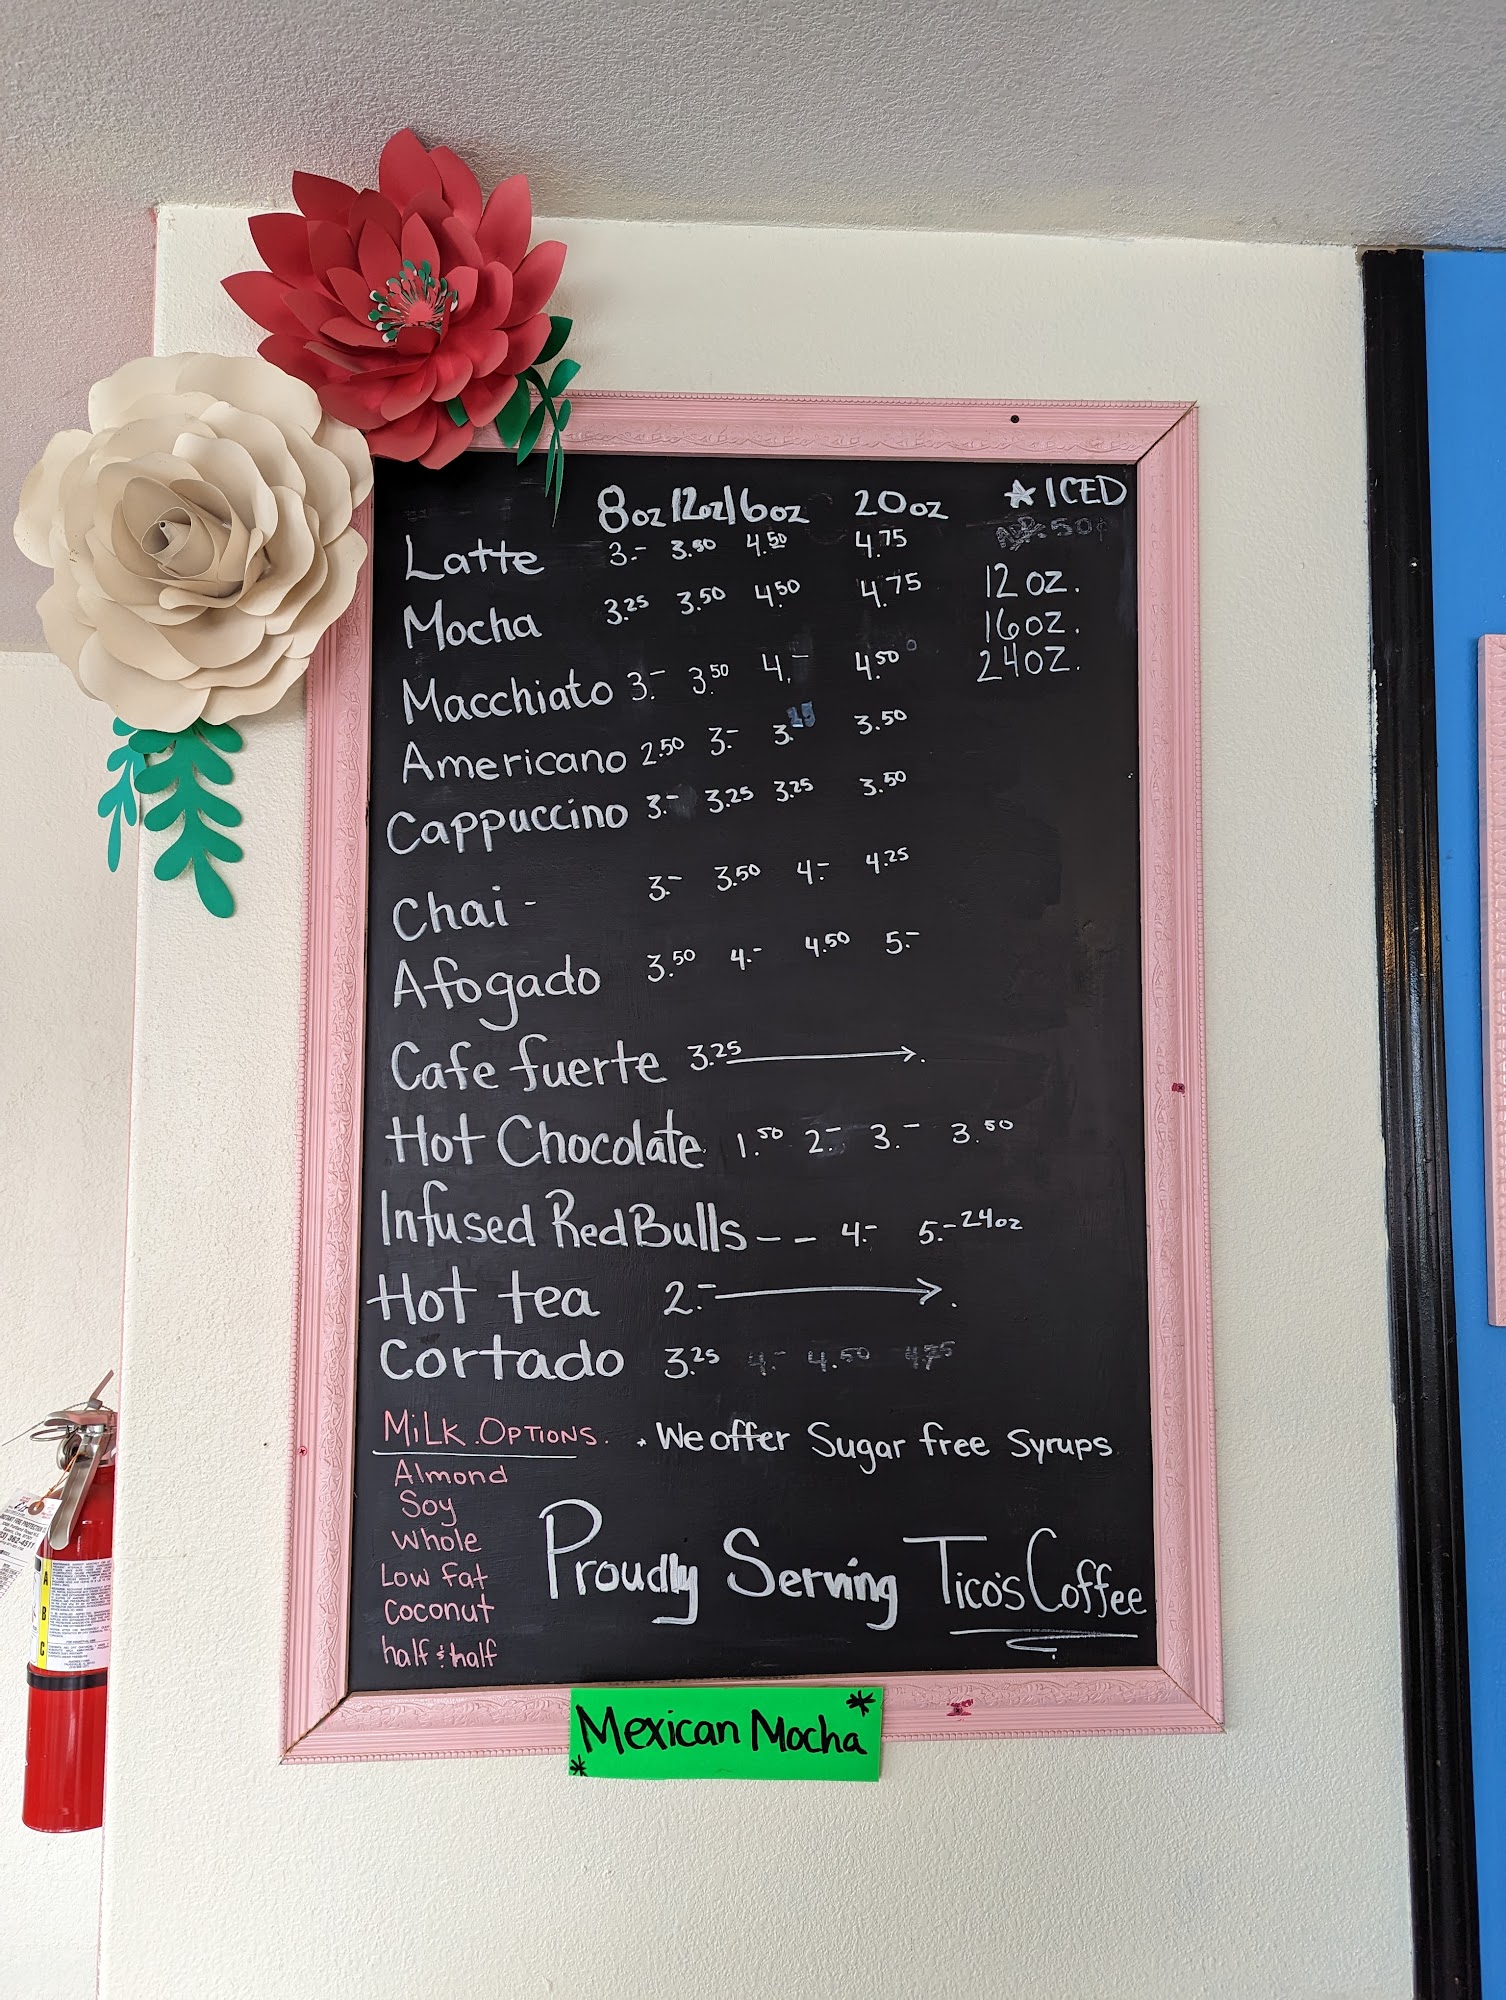 8oz 12oz 16oz 20oz ★ ICED
Latte 3.- 3.50 4.50 4.75
Mocha 3.25 3.50 4.50 4.75
12 oz.
16oz.
24oz.
Macchiato 3.- 3.50 4.- 4.50
Americano 2.50 3.- 3.25 3.50
Cappuccino 3.- 3.25 3.25 3.50
Chai - 3.- 3.50 4.- 4.25
Afogado 3.50 4.- 4.50 5.-
Cafe fuerte 3.25 →.
Hot Chocolate 1.50 2.- 3.- 3.50
Infused RedBulls - - 4.- 5.- 24oz
Hot tea 2.- →.
Cortado 3.25 4.- 4.50 4.75
MiLK.OPTIONS.
Almond
Soy
whole
Low fat
Coconut
half & half
. We offer Sugar free Syrups
Proudly Serving Tico's Coffee
*Mexican Mocha*
A
B
C